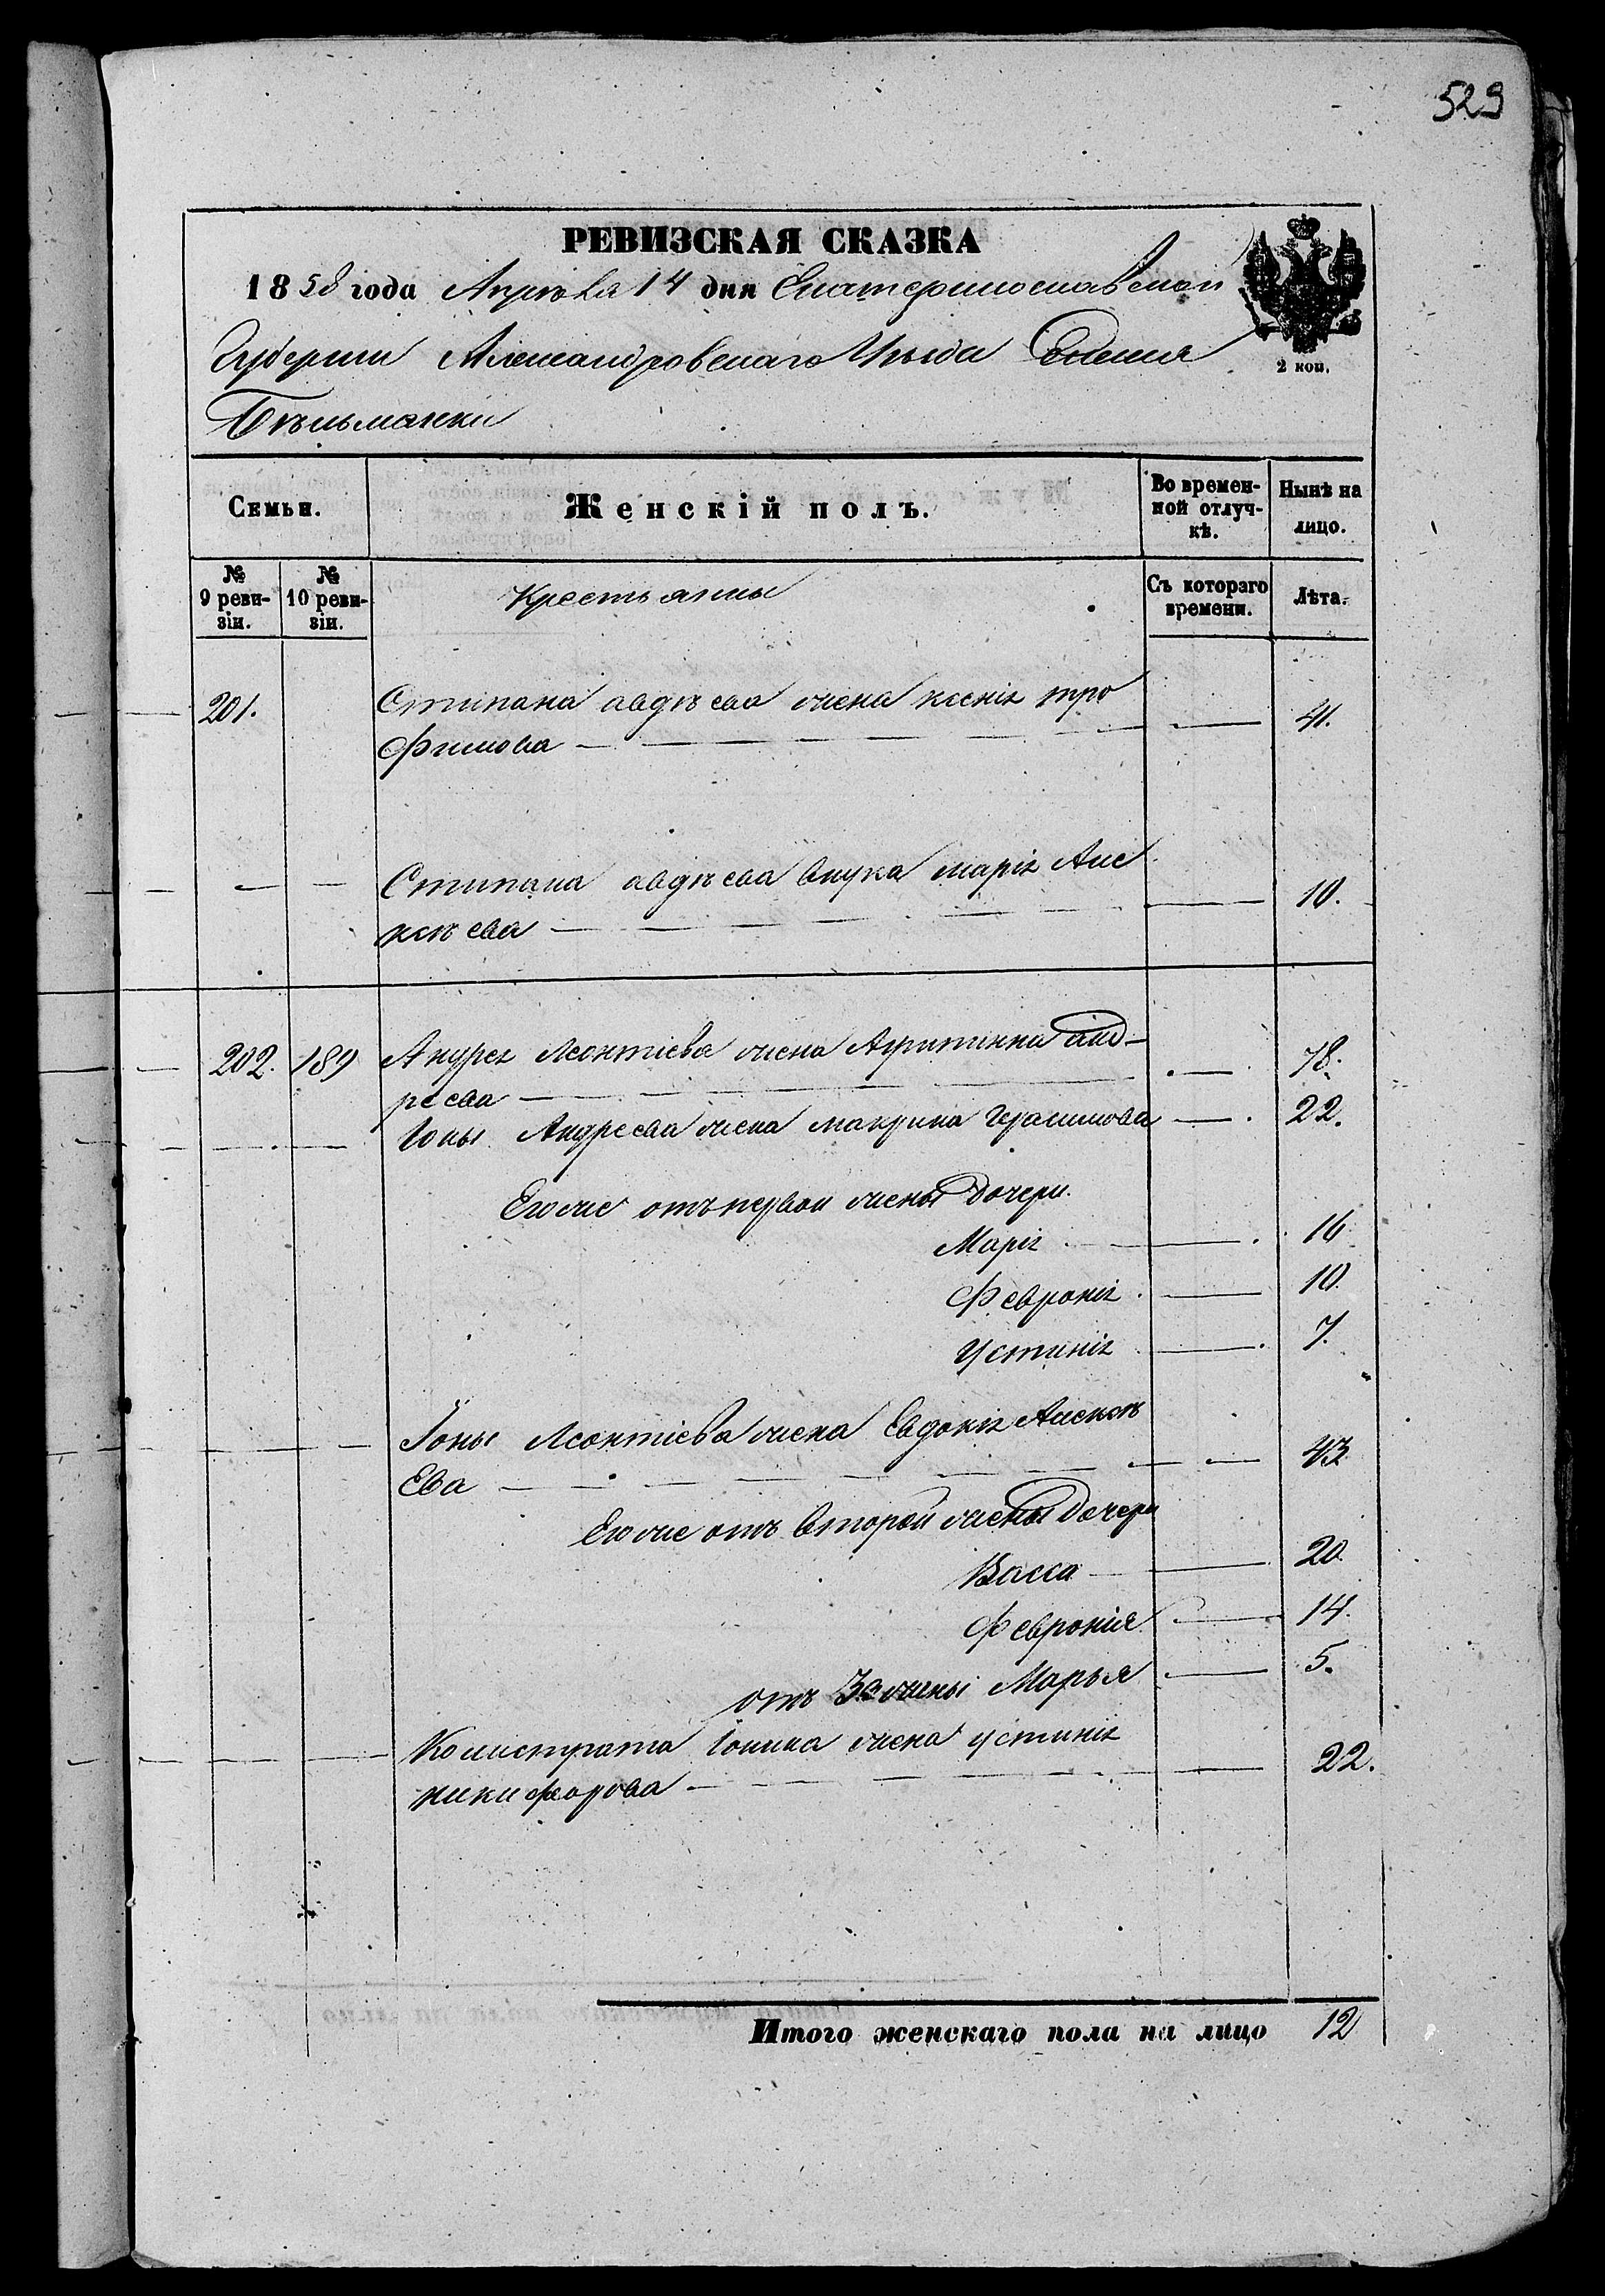 529
РЕВИЗСКАЯ СКАЗКА
1858 года Апреля 14 дня Екатеринославской
Губернии Александровскаго Уезда Селения
Бѣльманки
2 коп.
Семьи.
Женскій полъ.
Во времен-
ной отлуч-
кѣ.
Нынѣ на
лицо.
№
9 реви-
зіи.
№
10 реви-
зіи.
Крестьянны
Съ котораго
времени.
Лѣта.
201. Стипана авдѣева жена ксенія тро 41.
фимова
Стипана авдѣева внука марія Але 10.
ксѣева
202. 189 Андрея Леонтіева жена Агрипинна анд- 78.
реева
Іоны Андреева жена макрина Герасимова 22.
Егоже отъ первой жены дочери.
Марія 16
Февронія 10.
Устинія 7.
Іоны Леонтіева жена Евдокія Алексѣ 43
Ева
Егоже отъ второй жены дочери
Васса 20.
Февронія 14.
отъ 3й жены Марья 5.
Калистрата Іонина жена устинія 22.
никифорова
Итого женскаго пола на лицо 12